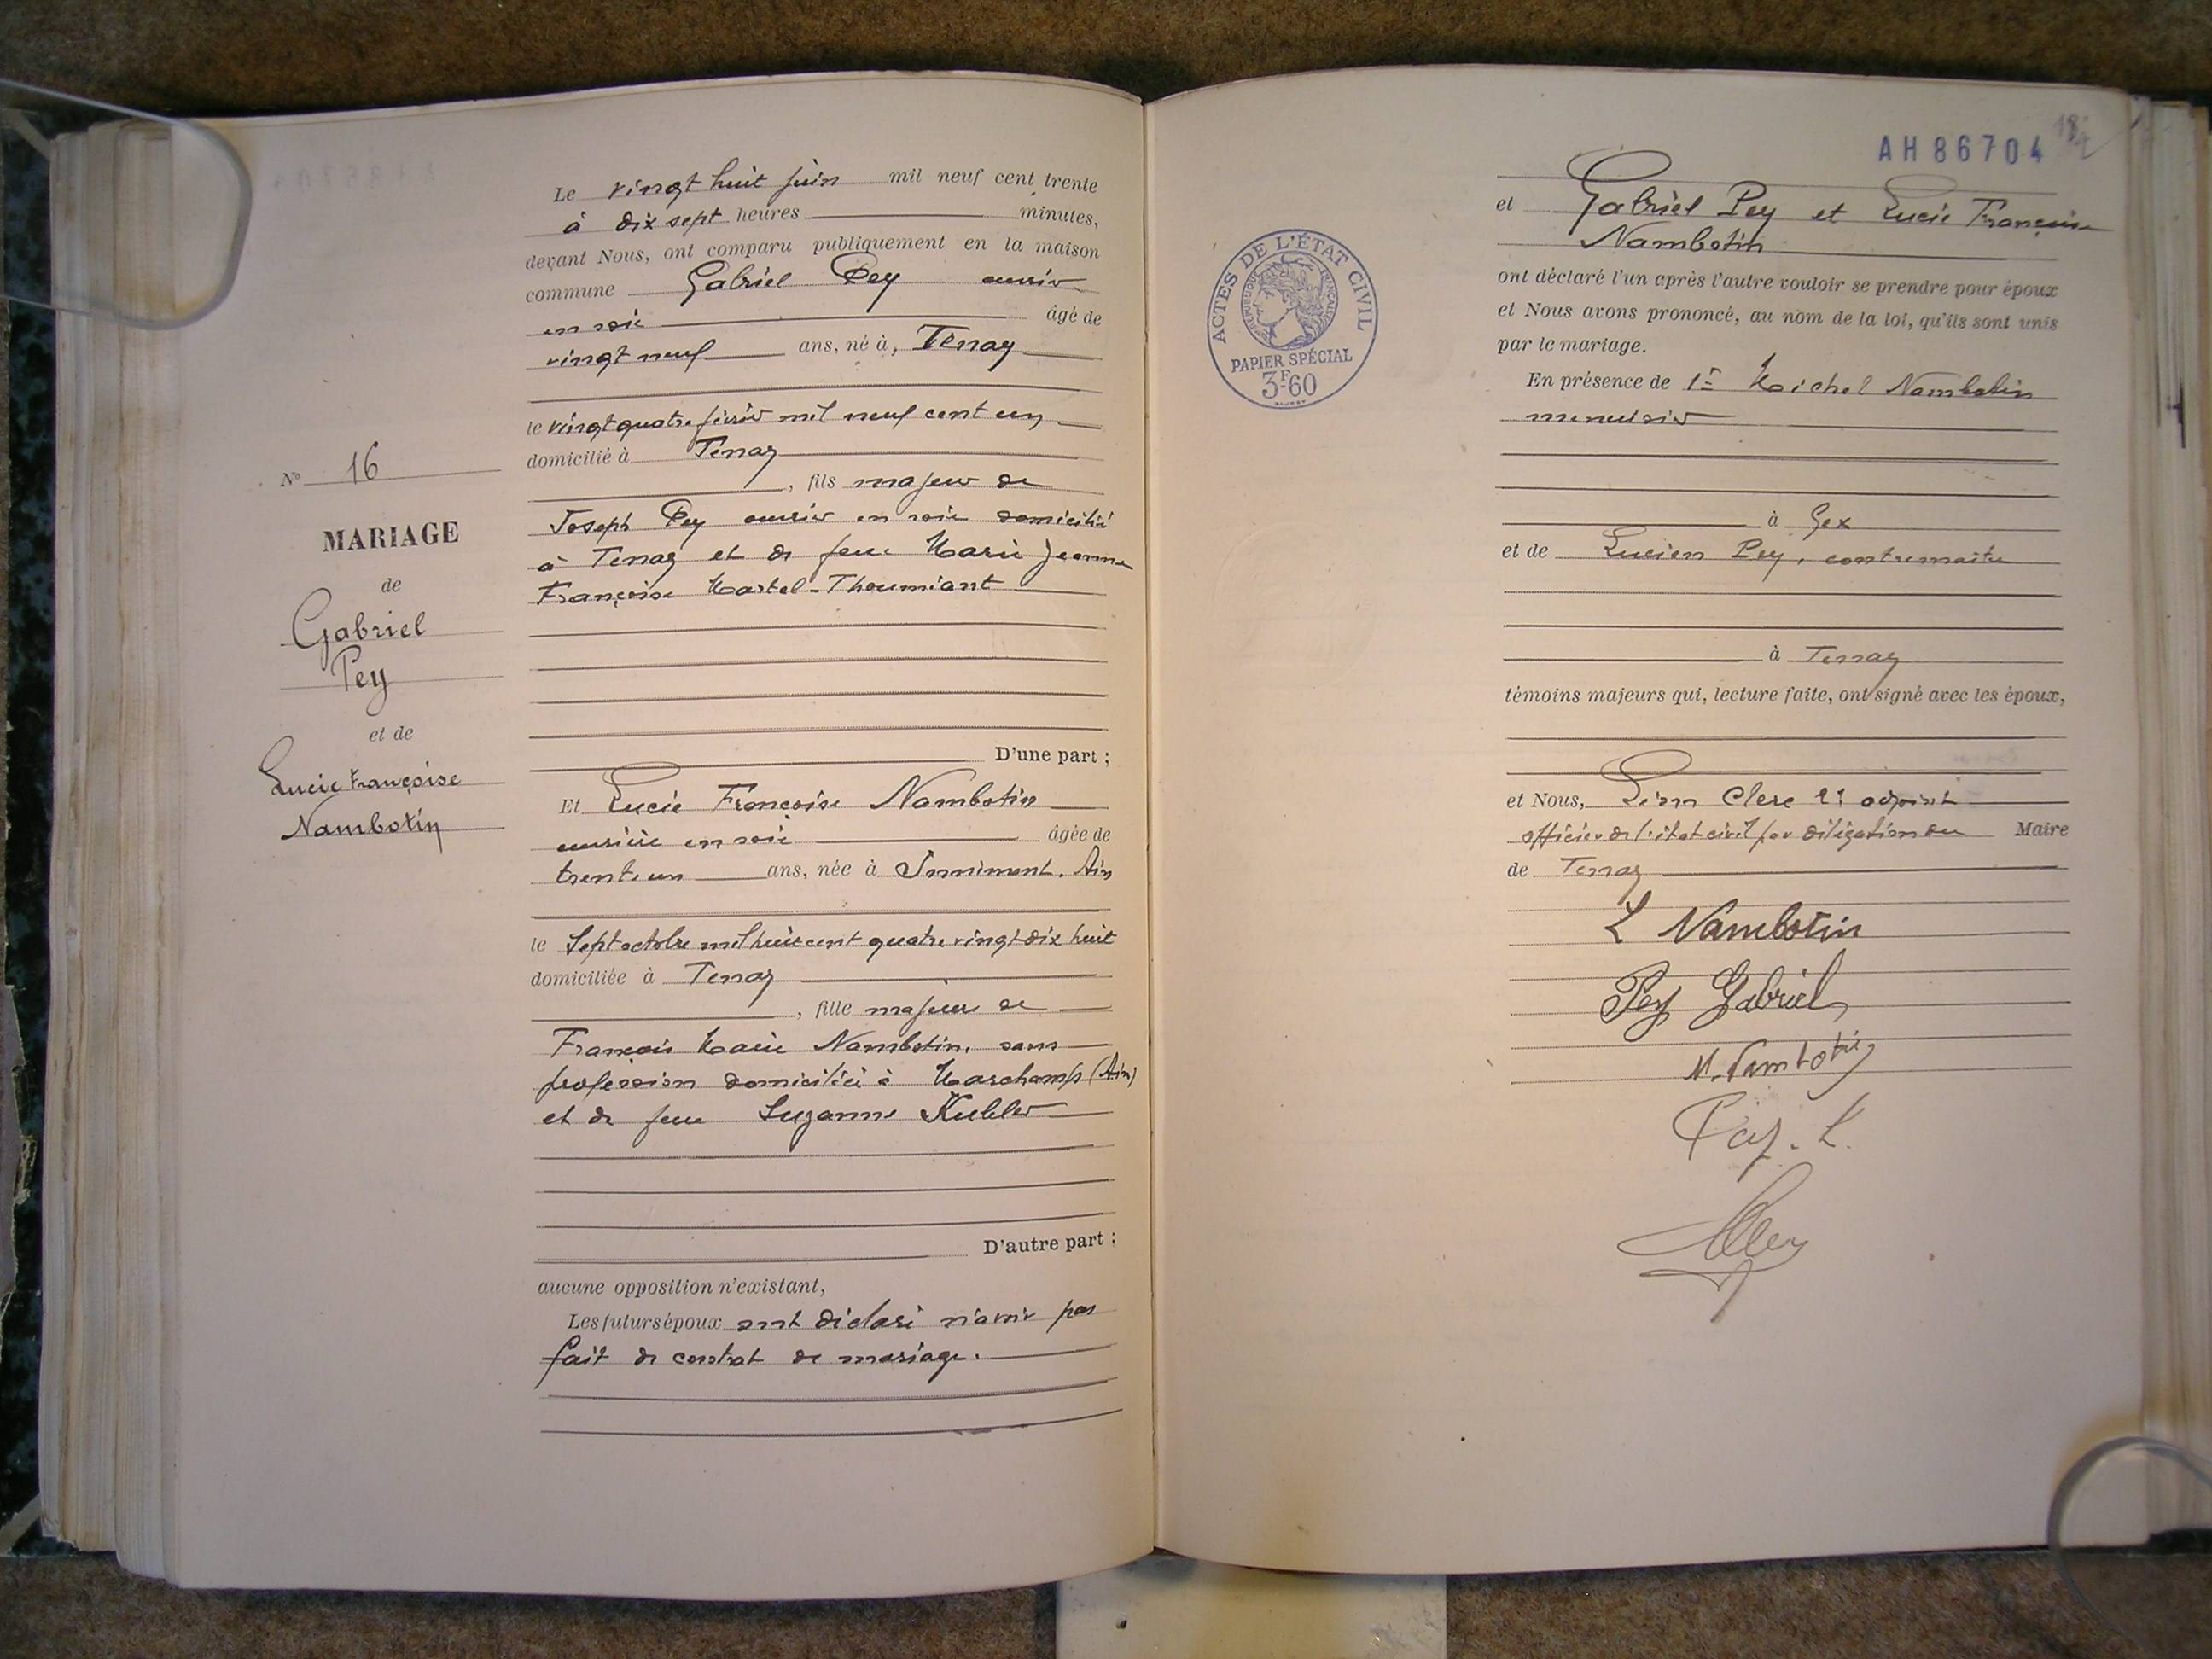 Le vingt huit juin mil neuf cent trente
à dix sept heures minutes,
devant Nous, ont comparu publiquement en la maison
commune Gabriel Pey ouvrier
en soie âgé de
vingt neuf ans, né à, Tenay
le vingt quatre février mil neuf cent un
domicilié à Tenay
, fils majeur de
Joseph Pey ouvrier en soie domicilié
à Tenay et de feue Marie Jeanne
Françoise Martel-Thoumiant
D'une part ;
Nº 16
MARIAGE
de
Gabriel
Pey
et de
Lucie Françoise
Nambotin
Et Lucie Françoise Nambotin
ouvrière en soie âgée de
trente un ans, née à Innimont. Ain
le Sept octobre mil huit cent quatre vingt dix huit
domiciliée à Tenay
, fille majeure de
François Marie Nambotin, sans
profession domicilié à Marchamp (Ain)
et de feue Suzanne Kubler
D'autre part ;
aucune opposition n'existant,
Les futurs époux ont déclaré n'avoir pas
fait de contrat de mariage.
AH86704
ACTES DE L'ÉTAT CIVIL
RÉPUBLIQUE FRANÇAISE
PAPIER SPÉCIAL
3F60
et Gabriel Pey et Lucie Françoise
Nambotin
ont déclaré l'un après l'autre vouloir se prendre pour époux
et Nous avons prononcé, au nom de la loi, qu'ils sont unis
par le mariage.
En présence de 1º Michel Nambotin
menuisier
à Gex
et de Lucien Pey, contremaitre
à Tenay
témoins majeurs qui, lecture faite, ont signé avec les époux,
et Nous, Clerc adjoint
officier de l'état civil par délégation du Maire
de Tenay
L Nambotin
Pey Gabriel
M. Nambotin
Pey. L.